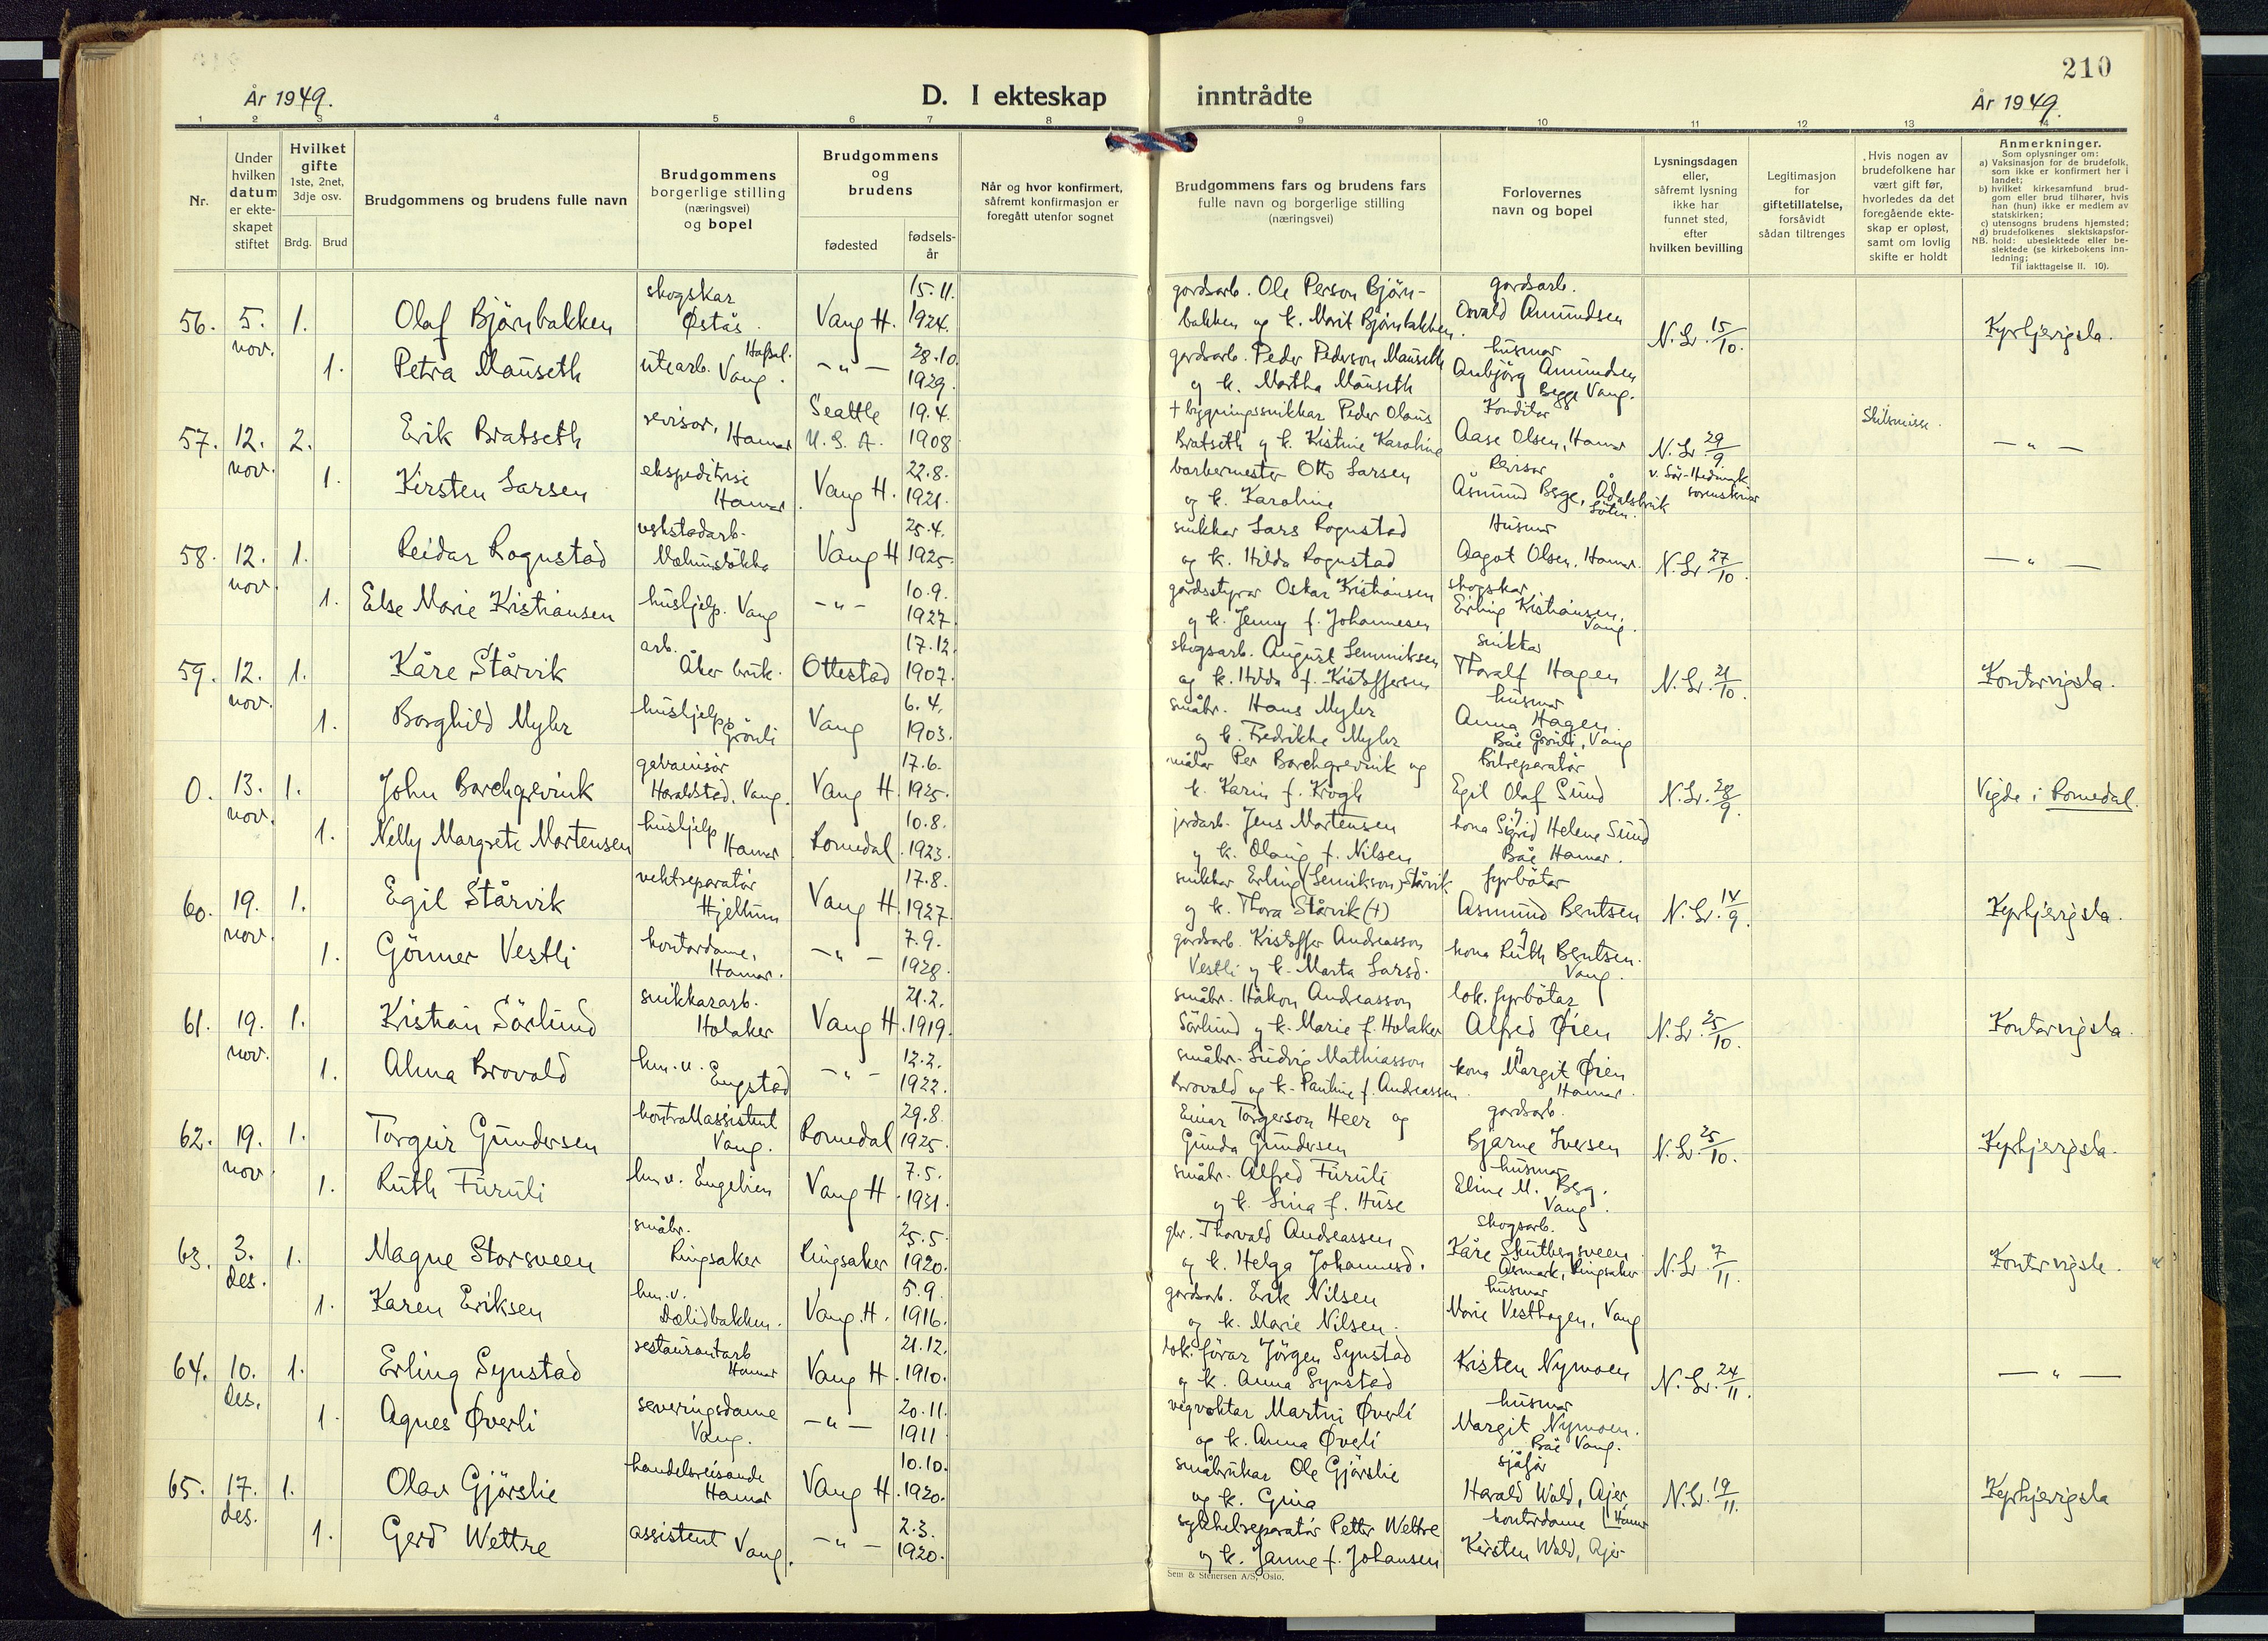 210
År 1949.
D. I ekteskap
inntrådte
År 1949.
1 2 3 4 5 6 7 8 9 10 11 12 13 14
Nr.
Under hvilken datum er ekte-skapet stiftet
Hvilket gifte 1ste, 2net, 3dje osv.
Brdg. Brud
Brudgommens og brudens fulle navn
Brudgommens borgerlige stilling (næringsvei) og bopel
Brudgommens og brudens
fødested
fødsels-år
Når og hvor konfirmert, såfremt konfirmasjon er foregått utenfor sognet
Brudgommens fars og brudens fars fulle navn og borgerlige stilling (næringsvei)
Forlovernes navn og bopel
Lysningsdagen eller, såfremt lysning ikke har funnet sted, efter hvilken bevilling
Legitimasjon for giftetillatelse, forsåvidt sådan tiltrenges
Hvis nogen av brudefolkene har vært gift før, hvorledes da det foregående ekte-skap er opløst, samt om lovlig skifte er holdt
Anmerkninger.
Som oplysninger om:
a) Vaksinasjon for de brudefolk, som ikke er konfirmert her i landet;
b) hvilket kirkesamfund brud-gom eller brud tilhører, hvis han (hun) ikke er medlem av statskirken;
c) utensogns brudens hjemsted;
d) brudefolkenes slektskapsfor-hold: ubeslektede eller be-slektede (se kirkebokens inn-ledning;
NB. Til iakttagelse II. 10).
56. 5. nov. 1. Olaf Björnbakken skogskar Østås. Vang H. 15.11. 1924. gardsarb. Ole Person Björn-bakken og k. Marit Björnbakken. gardsarb. Osvald Amundsen N. Lr. 15/10. Kyrkjevigsla.
1. Petra Mauseth utearb. Vang. Hafsal. -"- 28.10. 1929. gardsarb. Peder Pederson Mauseth og k. Martha Mauseth husmor Anbjörg Amundsen Begge Vang.
57. 12. nov. 2. Erik Bratseth revisor, Hamar Seattle U.S.A. 19.4. 1908 + bygningssnikkar Peder Olaus Bratseth og k. Kistine Karoline Konditor Aase Olsen, Hamar N. Lr. 29/9 v. Sør-Hedmark sorenskrivar Skilsmisse. -"-
1. Kirsten Larsen ekspeditrise Hamar. Vang H. 22.8. 1921. barbermester Otto Larsen og k. Karoline Revisor Åsmund Berge, Ådalsbruk Löten.
58. 12. nov. 1. Reidar Rognstad vekstadarb. Vang H 25.4. 1925. snikkar Lars Rognstad og k. Hilda Rognstad Husmor Aagot Olsen, Hamar. N. Lr. 27/10. -"-
1. Else Marie Kristiansen hushjelp. Vang -"- 10.9. 1927. gardsstyrar Oskar Kristiansen og k. Jenny f. Johannesen skogskar Erling Kristiansen, Vang.
59. 12. nov. 1. Kåre Stårvik arb. Åker bruk. Ottestad 17.12. 1907. skogsarb. August Lemmiksen og k. Hilda f. Kristoffersen snikkar Thoralf Hagen N. Lr. 21/10. Kontorvigsla.
1. Borghild Myhr hushjelp, Grönli Vang 6.4. 1903. småbr. Hans Myhr og k. Fredrikke Myhr husmor Anna Hagen. Båe Grönli, Vang
0. 13. nov. 1. John Borchgrevink galvanisör Haraldstad, Vang. Vang H. 17.6. 1925. målar Per Borchgrevink og k. Karin f. Krogh Bilreparatör Egil Olaf Sund N. Lr. 28/9. Vigde i Romedal.
1. Nelly Margrete Mortensen hushjelp Hamar. Romedal. 10.8. 1923. jordarb. Jens Mortensen og k. Olaug f. Nilsen og kona Sigrid Helene Sund Båe Hamar.
60. 19. nov. 1. Egil Stårvik vektreparatör Hjellum Vang H. 17.8. 1927. snikkar Erling (Lemikson) Stårvik og k. Thora Stårvik (+) fyrbötar Asmund Bentsen N. Lr. 14/9. Kyrkjevigsla.
1. Görmer Vestli kontordame, Hamar. -"- 7.9. 1928. gardsarb. Kristoffer Andreasson Vestli og k. Marta Larsd. og kona Ruth Bentsen. Vang.
61. 19. nov. 1. Kristian Sörlund snikkararb. Holaker Vang H. 21.2. 1919. småbr. Håkon Andreasson Sörlund og k. Marie f. Holaker lok. fyrbötar Alfred Øien N. Lr. 25/10. Kontorvigsla.
1. Alma Brovold hm.v. Engstad -"- 12.2. 1922. småbr. Ludvig Mathiasson Brovold og k. Pauline f. Andreassen. og kona Margit Øien Hamar.
62. 19. nov 1. Torgeir Gundersen kontrollassistent Vang. Romedal 29.8. 1925. Einar Torgerson Heer og Gunda Gundersen gardsarb. Bjarne Iversen N. Lr. 25/10. Kyrkjevigsla.
1. Ruth Furuli hm v. Engelien Vang H. 7.5. 1931. småbr. Alfred Furuli og k. Lina f. Huse husmor Eline M. Berg. Vang.
63. 3. des. 1. Magne Storsveen småbr. Ringsaker Ringsaker 25.5. 1920. gbr. Thorvald Andreassen og k. Helga Johannesd. skogsarb. Kåre Skutbergsveen Åsmark, Ringsaker N. Lr. 7/11. Kontorvigsle.
1. Karen Eriksen hm.v. Dælidbakken. Vang. H. 5.9. 1916. gardsarb. Erik Nilsen og k. Marie Nilsen. husmor Marie Vesthagen, Vang
64. 10. des. 1. Erling Synstad restaurantarb Hamar Vang H. 21.12. 1910. lok. förar Jörgen Synstad og k. Anna Synstad Kristen Nymoen N. Lr. 24/11. -"-
1. Agnes Øverli serveringsdame Vang. -"- 20.11. 1911 vegvoktar Martin Øverli og k. Anna Øverli husmor Margit Nymoen. Båe Vang.
65. 17. des. 1. Olav Gjörslie handelsreisande Hamar Vang H. 10.10. 1920. småbrukar Ole Gjörslie og k. Gina sjåför Harald Wold, Ajer, Hamar N. Lr. 19/11. Kyrkjevigsla
1. Gerd Wettre assistent Vang. -"- 2.3. 1920. sykkelreparatör Petter Wettre og k. Janne f. Johansen kontordame Kirsten Wold, Ajer
Sem & Stenersen A/S, Oslo.